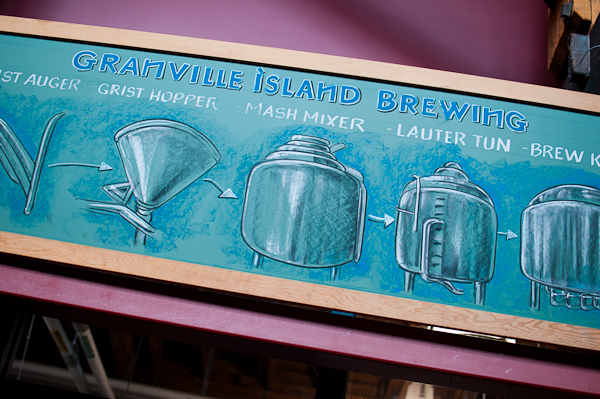 GRANVILLE ISLAND BREWING
IST AUGER - GRIST HOPPER - MASH MIXER - LAUTER TUN - BREW K